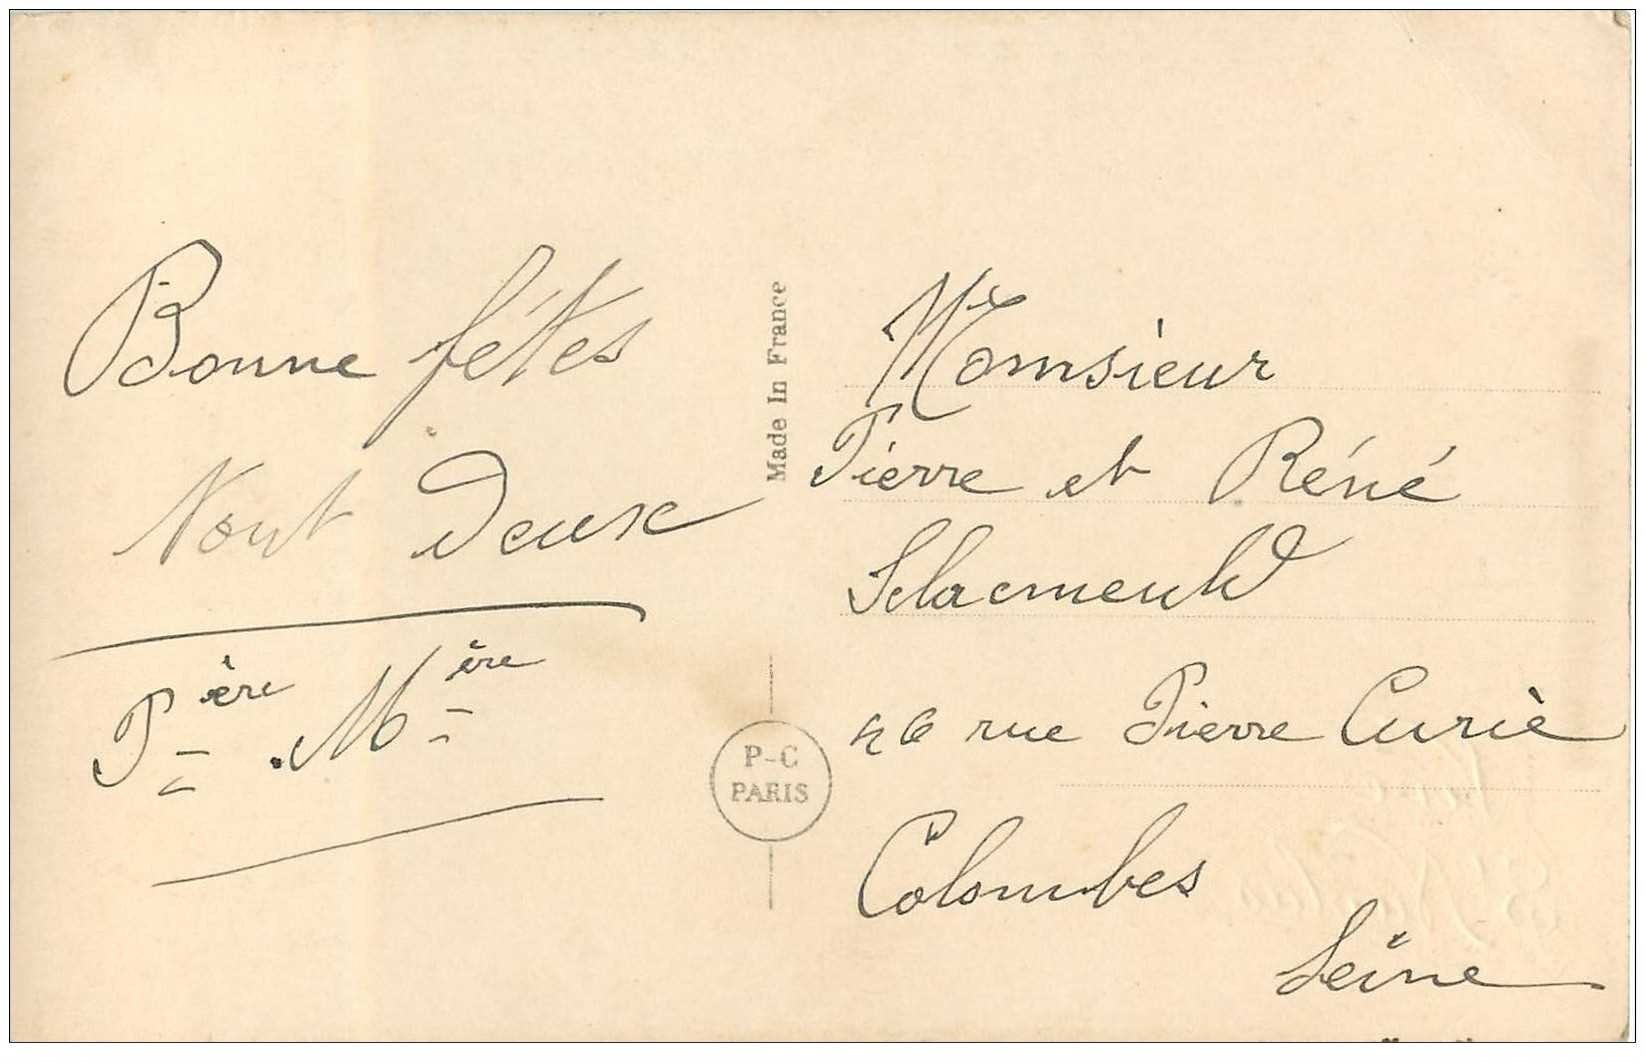 Bonne fêtes
deux
Père. Mère
Made In France
P-C
PARIS
Monsieur
Pierre et Réné
rue Pierre Curiè
Colombes
Seine